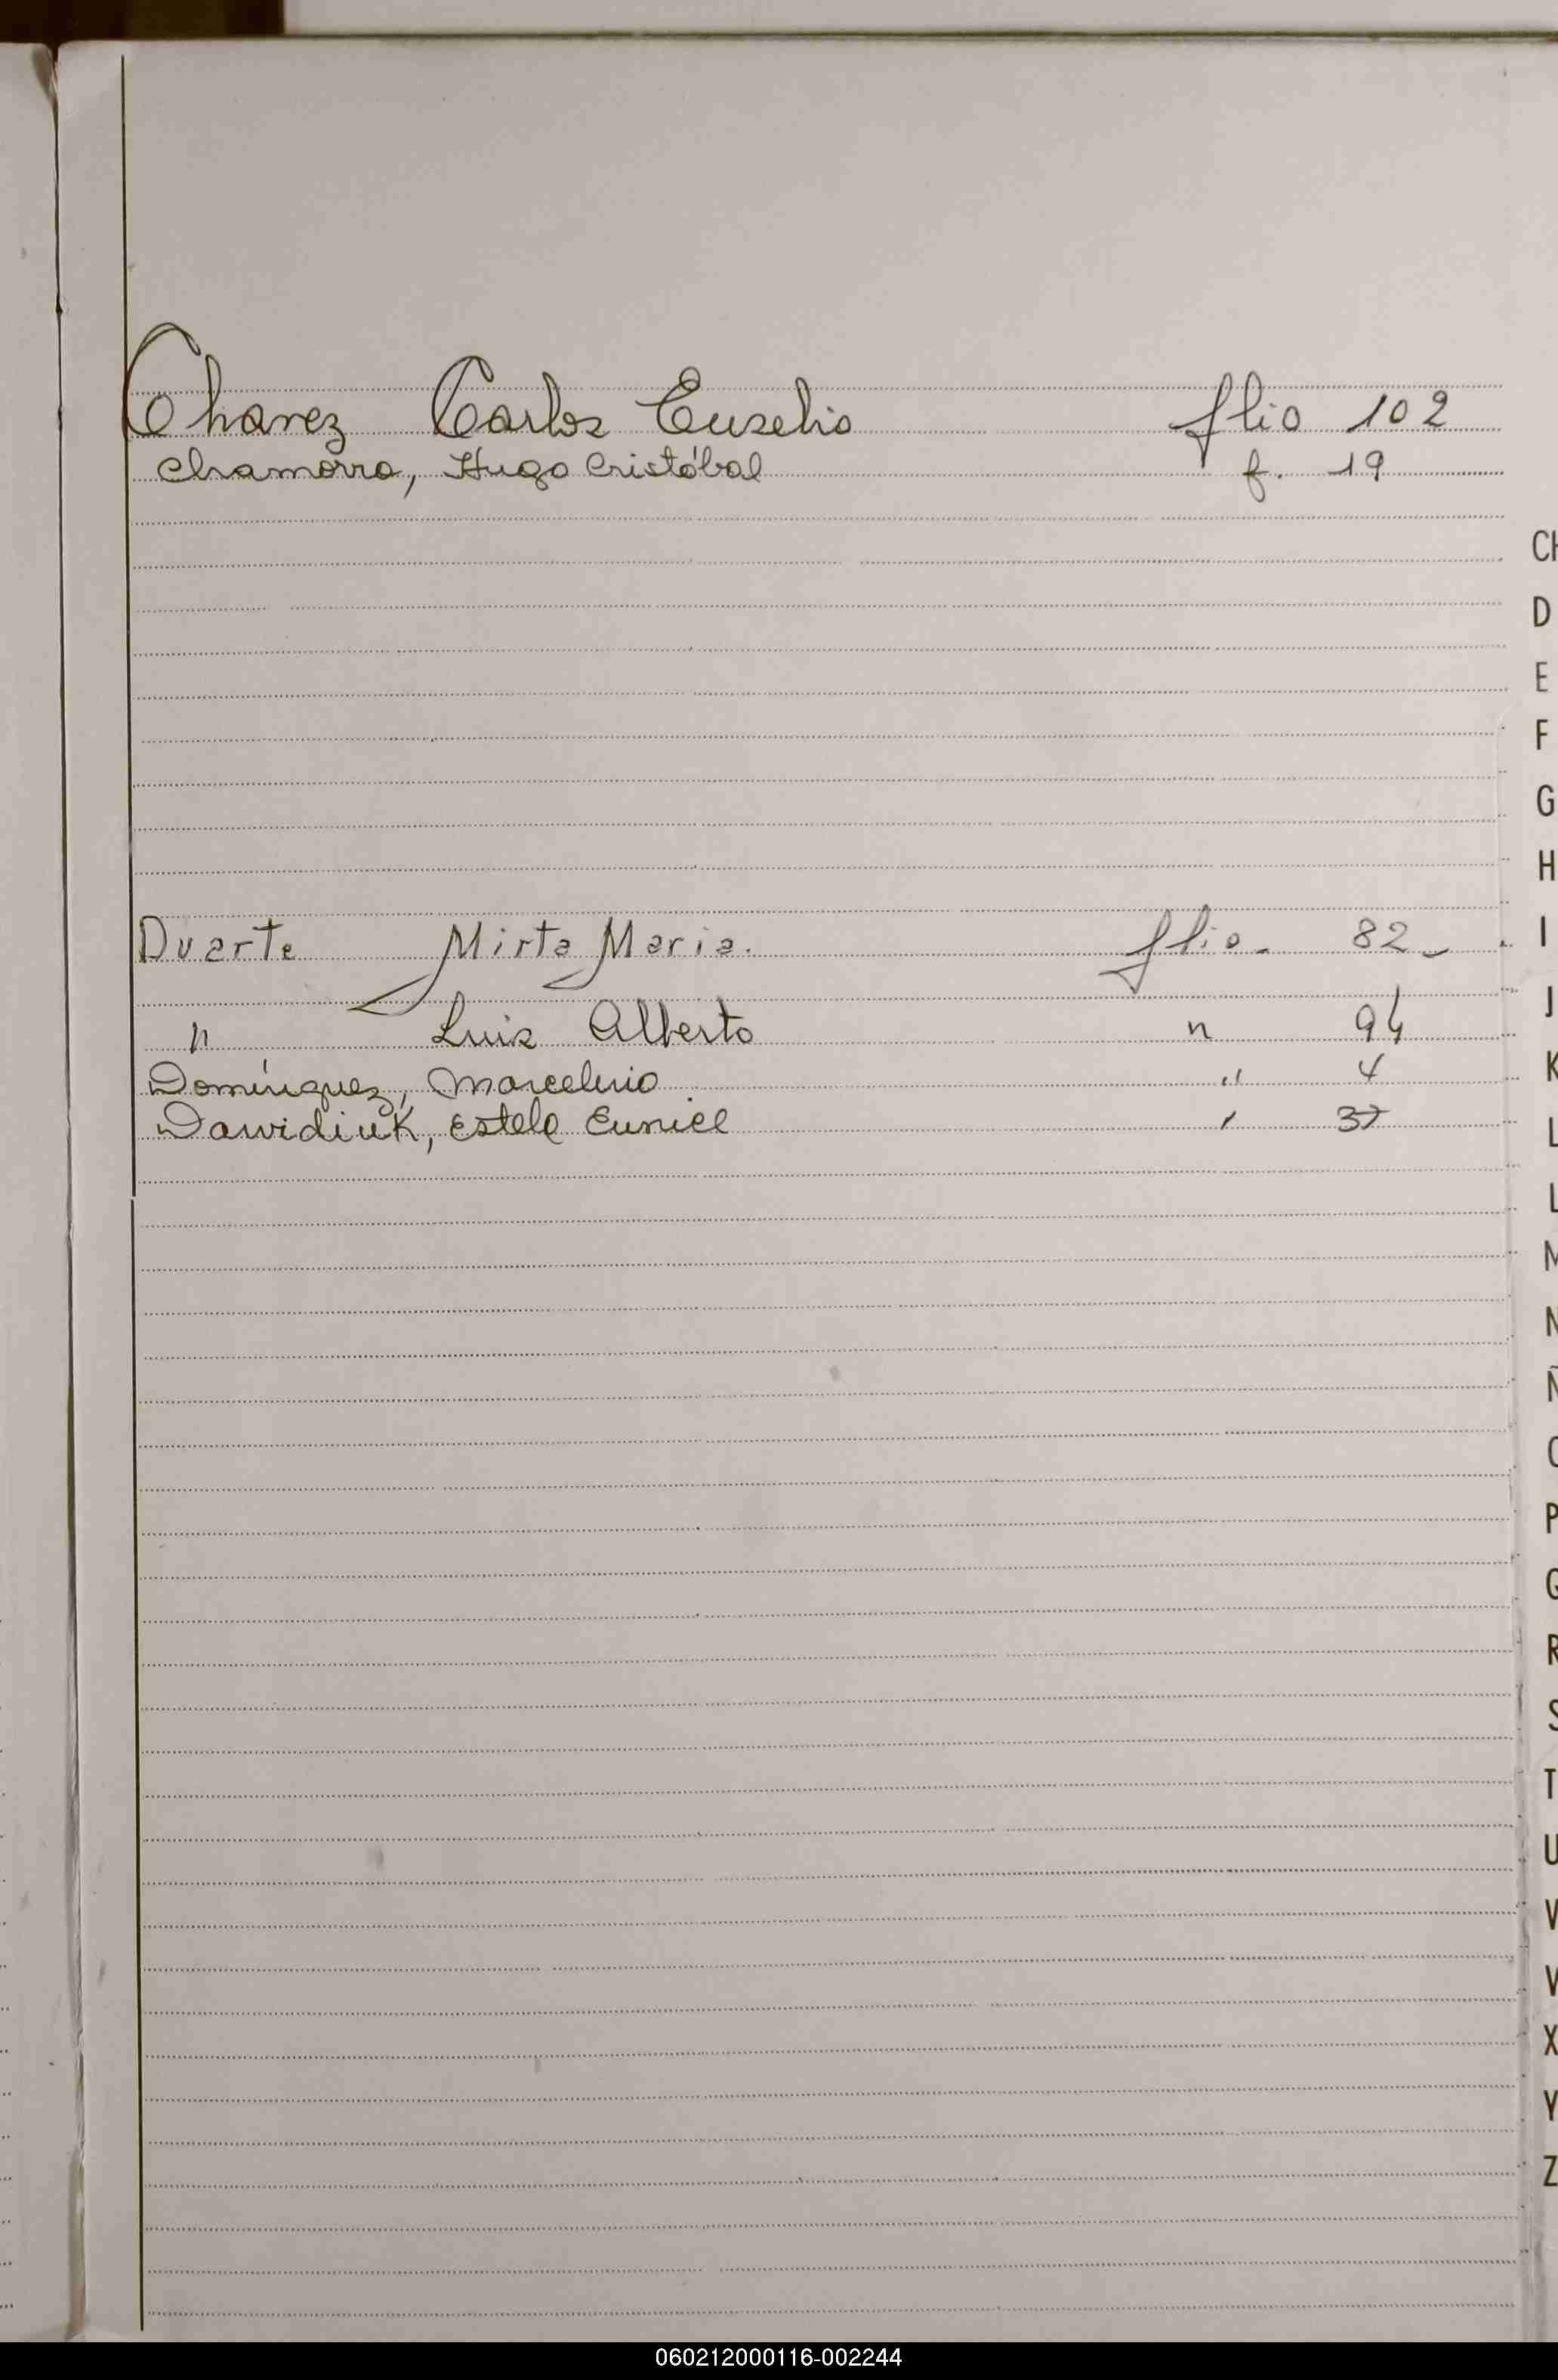 Chavez Carlos Euselio flio 102
Chamorro, Hugo Cristóbal f. 19
CH
D
E
F
G
H
Duarte Mirta Maria. flio - 82 -
I
J
" Luis Alberto " 94
Domínguez, Marcelino " 4
K
Dawidiuk, Estela Eunice " 37
L
L
M
N
Ñ
O
P
Q
R
S
T
U
V
V
X
Y
Z
060212000116-002244